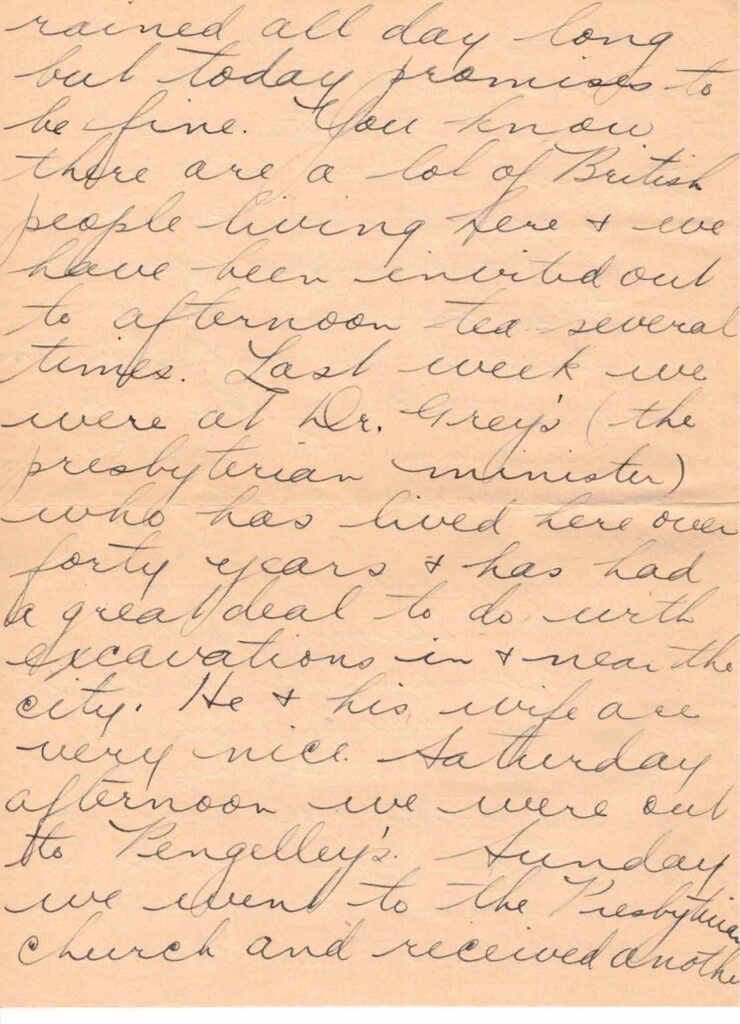 rained all day long
but today promises to
be fine. You know
there are a lot of British
people living here & we
have been invited out
to afternoon tea several
times. Last week we
were at Dr. Grey's (the
presbyterian minister)
who has lived here over
forty years & has had
a great deal to do with
excavations in & near the
city. He & his wife are
very nice. Saturday
afternoon we were out
to Pengelley's. Sunday
we went to the Presbyterian
church and received another